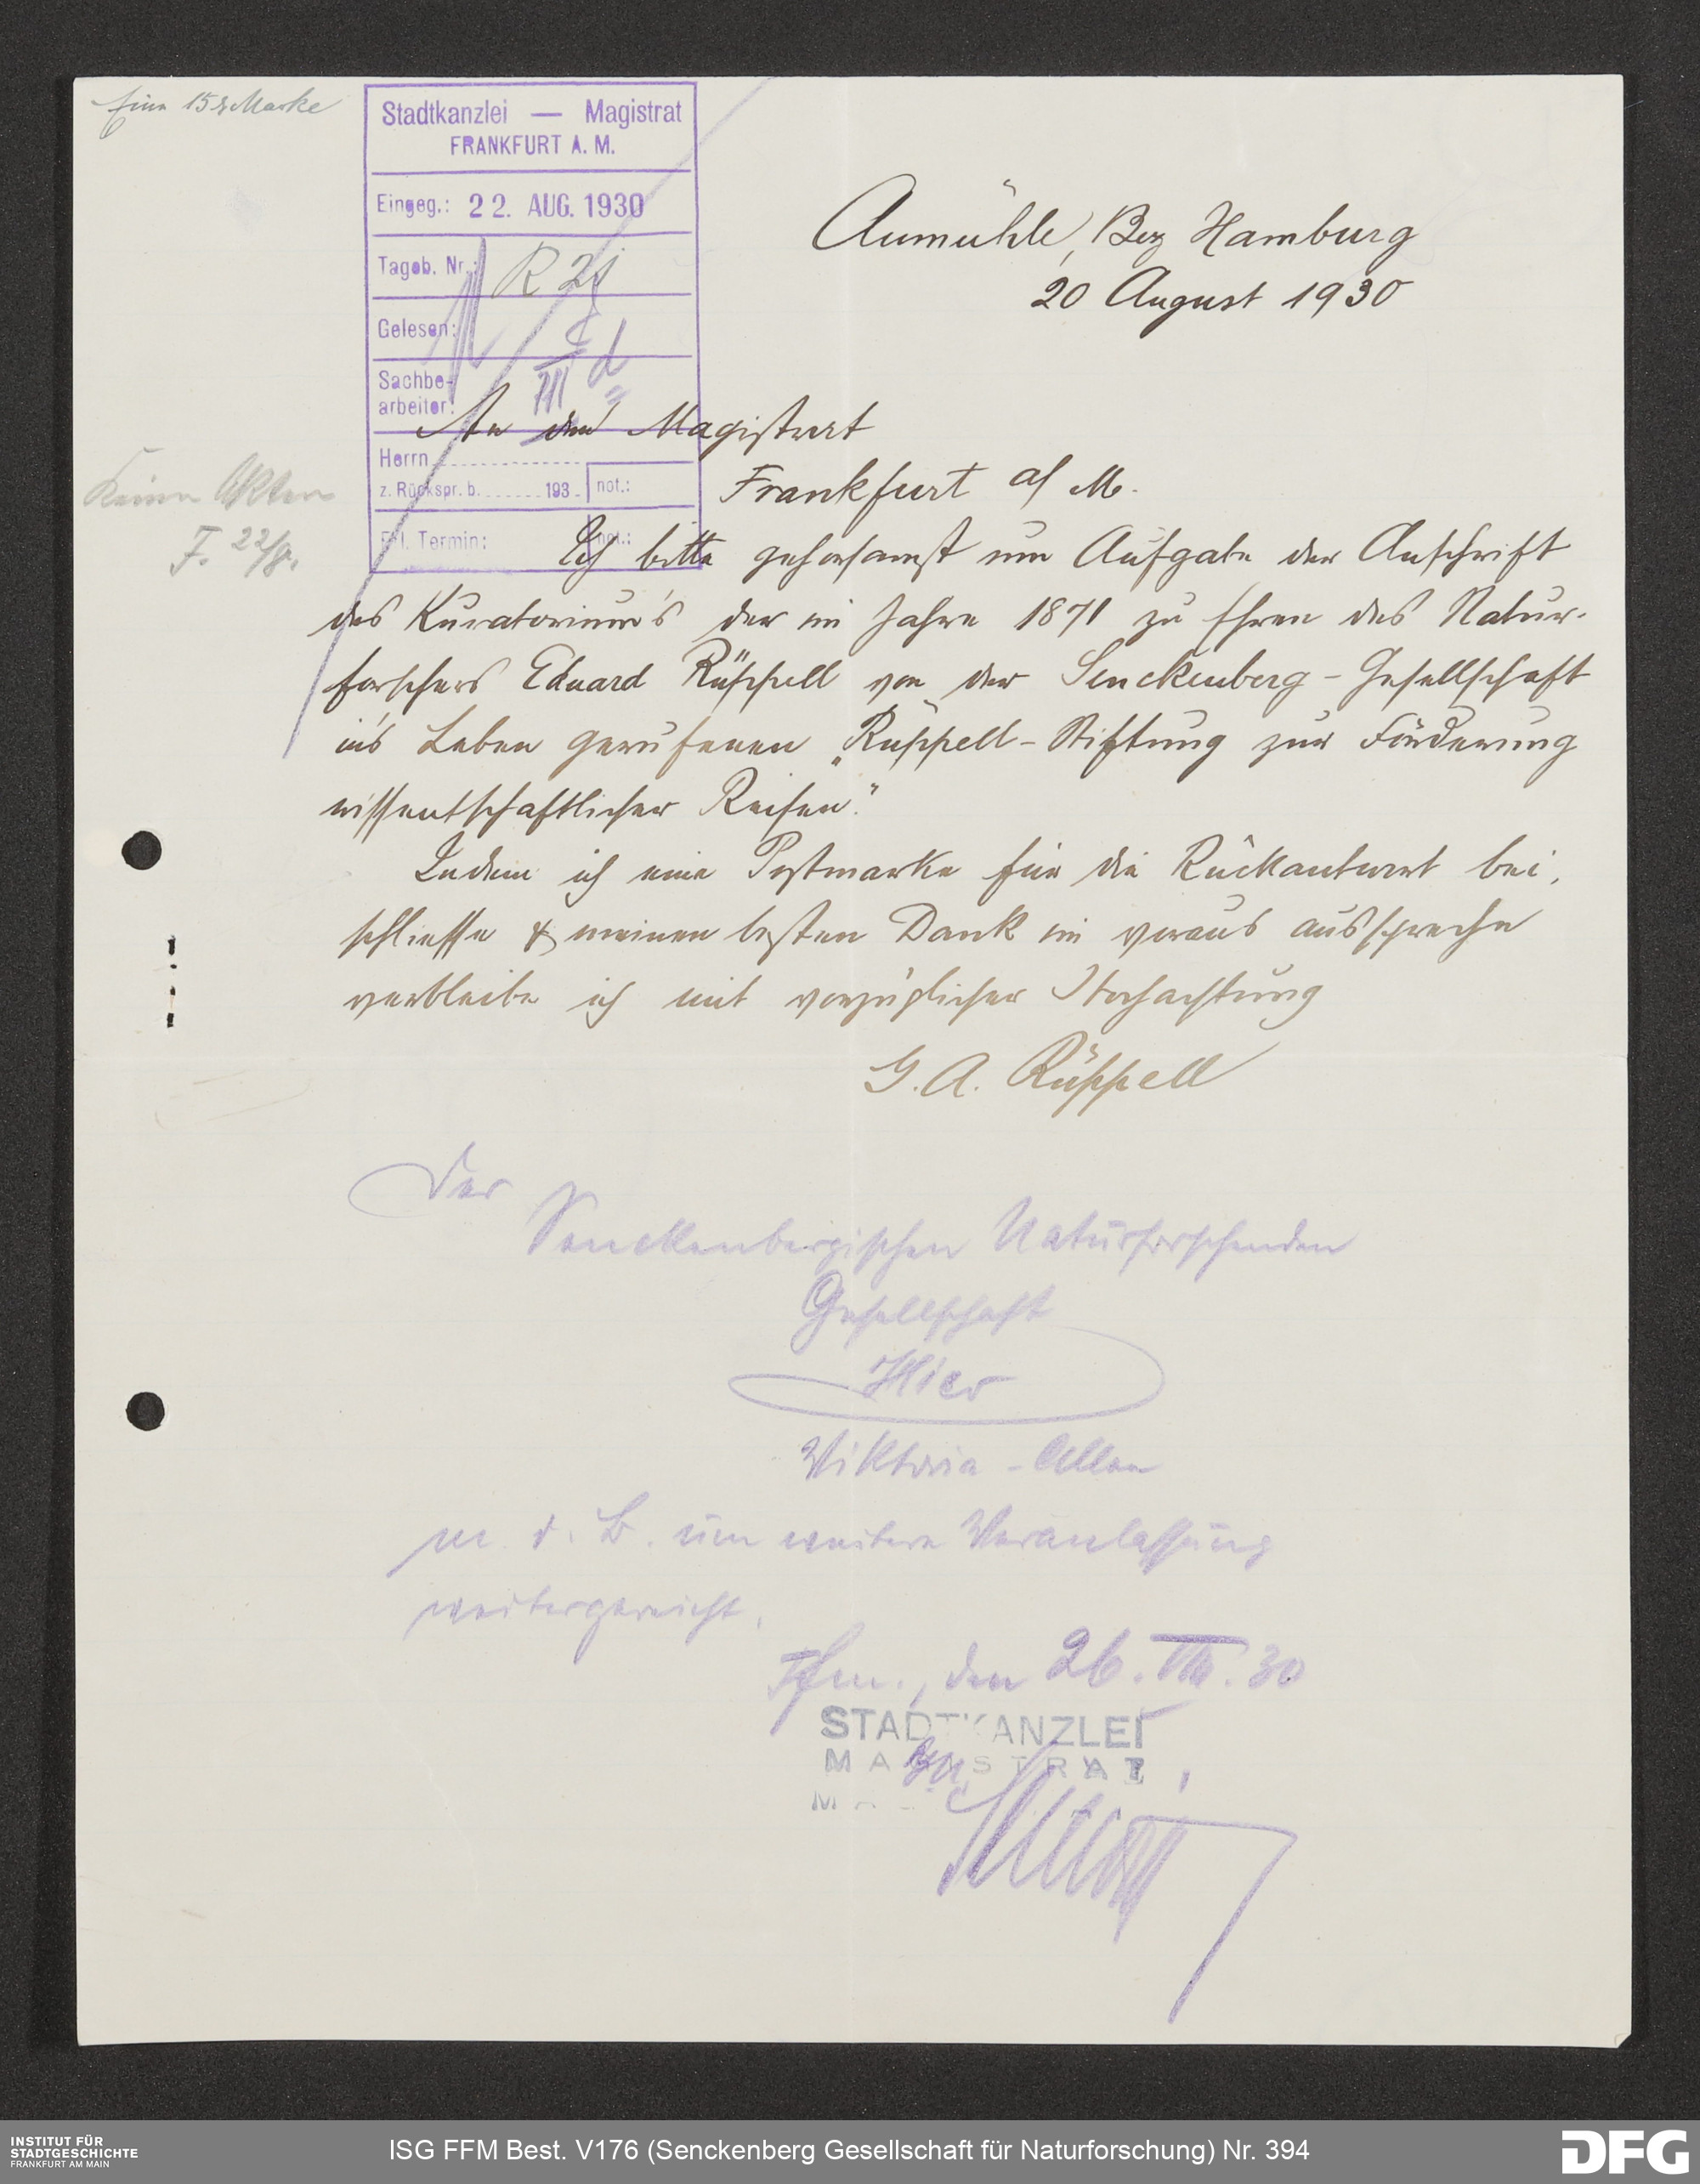 Eine 15 ₰ Marke
Stadtkanzlei — Magistrat
FRANKFURT A. M.
Eingeg.: 22. AUG. 1930
Tageb. Nr.: R 21
Gelesen:
Sachbe-
arbeiter:
Herrn
z. Rückspr. b. 193 not.:
Erl. Termin: not.:
Aumühle, Bez Hamburg
20 August 1930
An den Magistrat
Frankfurt a/ M.
Keine Akten
F. 22/8.
Ich bitte gehorsamst um Aufgabe der Anschrift
des Kuratorium's der im Jahre 1871 zu Ehren des Natur-
forschers Eduard Rüppell von der Senckenberg-Gesellschaft
ins Leben gerufenen „Rüppell-Stiftung zur Förderung
wissentschaftlicher Reisen."
Indem ich eine Postmarke für die Rückantwort bei,
schliesse & meinen besten Dank im voraus ausspreche
verbleibe ich mit vorzüglicher Hochachtung
G. A. Rüppell
Der
Senckenbergischen Naturforschenden
Gesellschaft
Hier
Viktoria-Allee
m. d. B. um weitere Veranlassung
weitergereicht.
Ffm., den 26. VIII. 30
STADTKANZLEI
MAGISTRAT
INSTITUT FÜR
STADTGESCHICHTE
FRANKFURT AM MAIN
ISG FFM Best. V176 (Senckenberg Gesellschaft für Naturforschung) Nr. 394
DFG